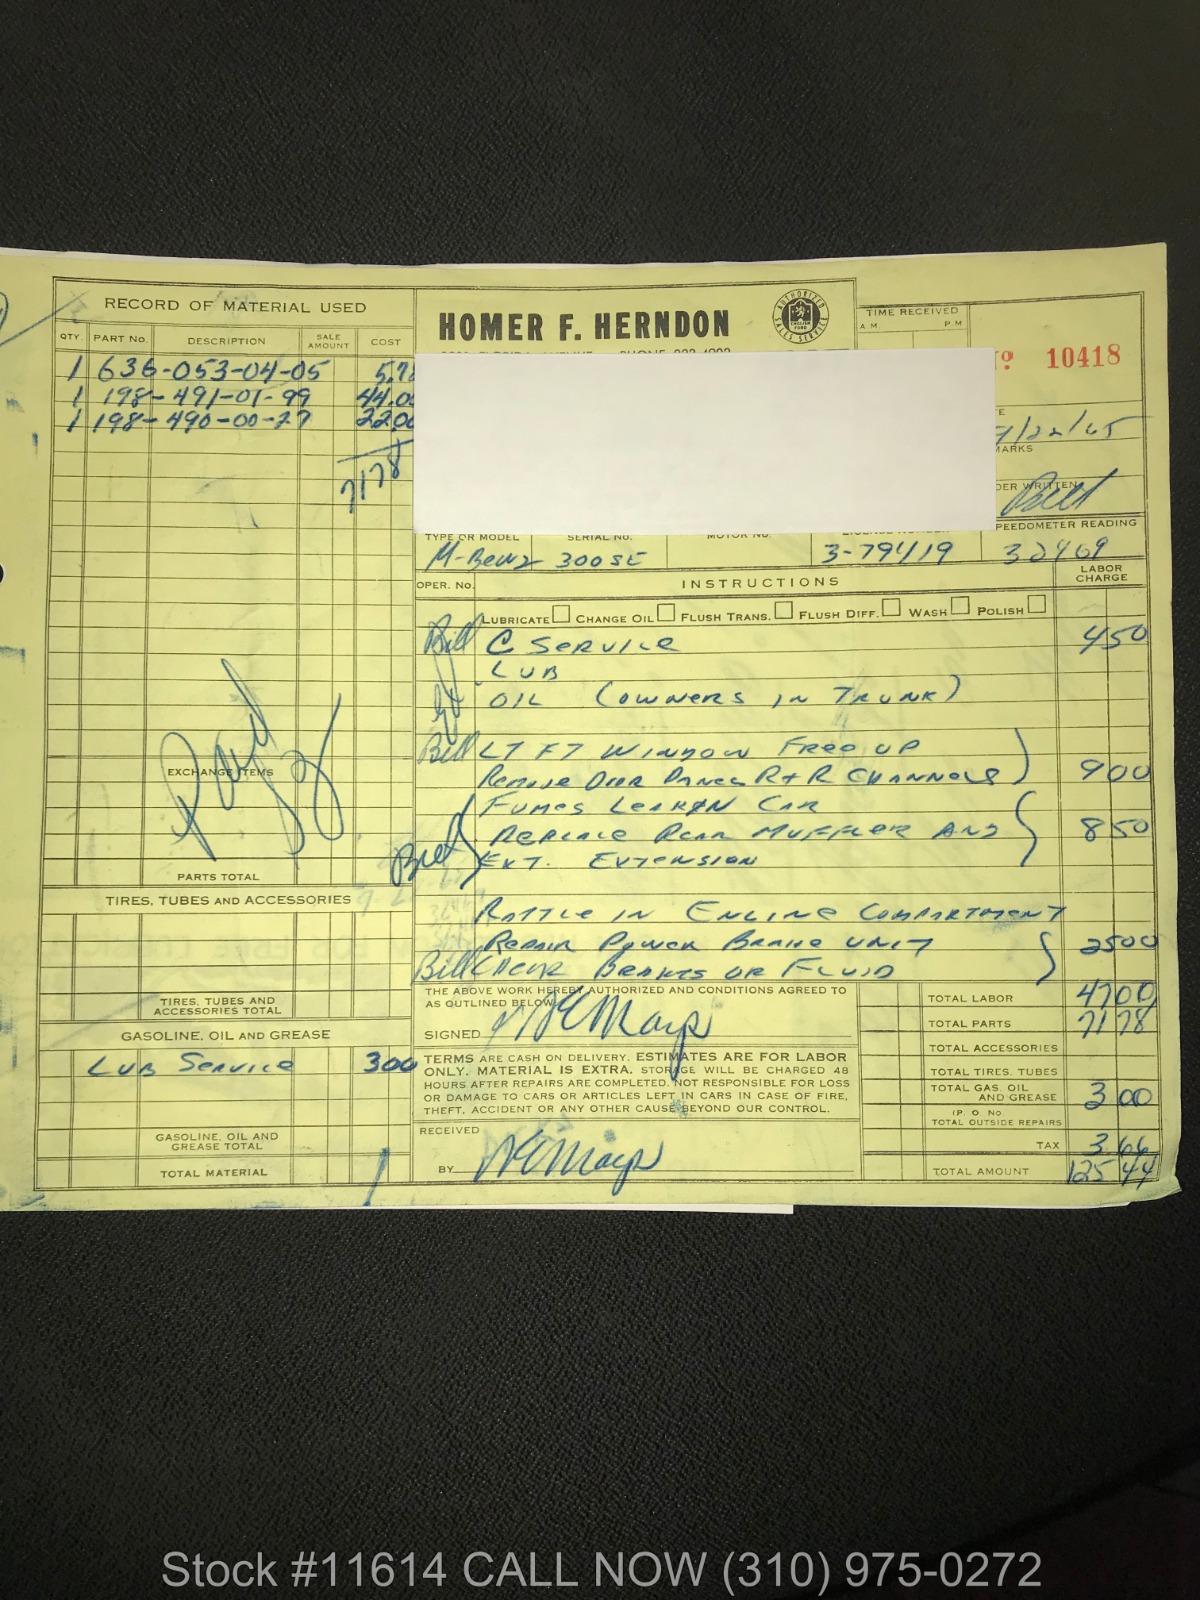 RECORD OF MATERIAL USED
QTY. PART No. DESCRIPTION SALE AMOUNT COST
1 636-053-04-05 5.78
1 198-491-01-99 44.0
1 198-490-00-27 22.00
7178
EXCHANGE ITEMS
Paid
PARTS TOTAL
TIRES, TUBES AND ACCESSORIES
TIRES, TUBES AND
ACCESSORIES TOTAL
GASOLINE, OIL AND GREASE
LUB SERVICE 300
GASOLINE, OIL AND
GREASE TOTAL
TOTAL MATERIAL
HOMER F. HERNDON
AUTHORIZED
ENGLISH
FORD
SALES SERVICE
TIME RECEIVED
A.M. P.M
No 10418
/22/65
Bill
TYPE OR MODEL SERIAL NO. MOTOR NO.
SPEEDOMETER READING
M-Benz 300SE 3-79419 32469
OPER. No. INSTRUCTIONS LABOR CHARGE
LUBRICATE CHANGE OIL FLUSH TRANS. FLUSH DIFF. WASH POLISH
Bill C SERVICE 450
LUB
OIL (OWNERS IN TRUNK)
Bill LT FT WINDOW FREE UP
REMOVE DOOR PANEL R+R CHANNELS 900
FUMES LEAK IN CAR
REPLACE REAR MUFFLER AND 850
Bill EXT. EXTENSION
RATTLE IN ENGINE COMPARTMENT
REPAIR POWER BRAKE UNIT 2500
Bill CHECK BRAKES OR FLUID
THE ABOVE WORK HEREBY AUTHORIZED AND CONDITIONS AGREED TO
AS OUTLINED BELOW.
SIGNED
TERMS ARE CASH ON DELIVERY. ESTIMATES ARE FOR LABOR
ONLY. MATERIAL IS EXTRA. STORAGE WILL BE CHARGED 48
HOURS AFTER REPAIRS ARE COMPLETED. NOT RESPONSIBLE FOR LOSS
OR DAMAGE TO CARS OR ARTICLES LEFT IN CARS IN CASE OF FIRE,
THEFT, ACCIDENT OR ANY OTHER CAUSE BEYOND OUR CONTROL.
RECEIVED
BY
TOTAL LABOR 4700
TOTAL PARTS 7178
TOTAL ACCESSORIES
TOTAL TIRES. TUBES
TOTAL GAS. OIL
AND GREASE 3 00
(P. O. No.
TOTAL OUTSIDE REPAIRS
TAX 3.66
TOTAL AMOUNT 125 44
Stock #11614 CALL NOW (310) 975-0272